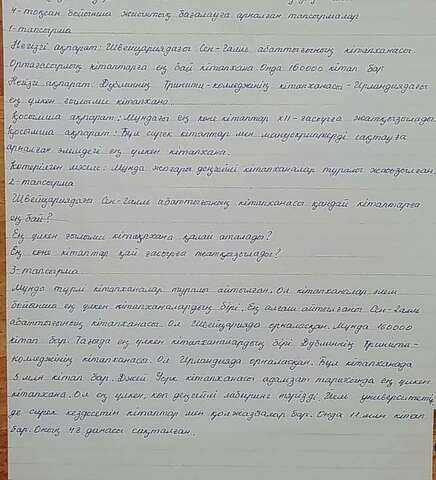 4-тоқсан бойынша жиынтық бағалауға арналған тапсырмалар
1-тапсырма
Негізгі ақпарат: Швейцариядағы Сен-Галле аббаттығының кітапханасы.
Ортағасырлық кітаптарға ең бай кітапхана. Онда 160000 кітап бар
Негізгі ақпарат: Дублиннің Тринити-колледжінің кітапханасы - Ирландиядағы
ең үлкен ғылыми кітапхана.
Қосымша ақпарат: Мұндағы ең көне кітаптар XII-ғасырға жатқызылады.
Қосымша ақпарат: Бұл сирек кітаптар мен манускриптерді сақтауға
арналған әлемдегі ең үлкен кітапхана.
Көтерілген мәселе: Мұнда жоғары деңгейлі кітапханалар туралы жазылған.
2-тапсырма
Швейцариядағы Сен-Галле аббаттығының кітапханасы қандай кітаптарға
ең бай?
Ең үлкен ғылыми кітапхана қалай аталады?
Ең көне кітаптар қай ғасырға жатқызылады?
3-тапсырма
Мұнда түрлі кітапханалар туралы айтылған. Ол кітапханалар әлем
бойынша ең үлкен кітапханалардың бірі. Ең алғаш айтылғаны Сен-Галле
аббаттығының кітапханасы. Ол Швейцарияда орналасқан. Мұнда 160000
кітап бар. Тағыда ең үлкен кітапханалардың бірі Дублиннің Тринити-
колледжінің кітапханасы. Ол Ирландияда орналасқан. Бұл кітапханада
5 млн кітап бар. Джей Уорк кітапханасы адамзат тарихында ең үлкен
кітапхана. Ол ең үлкен, көп деңгейлі лабиринт тәрізді. Йель университетін
де сирек кездесетін кітаптар мен қолжазбалар бар. Онда 11 млн кітап
бар. Оның 48 данасы сақталған.